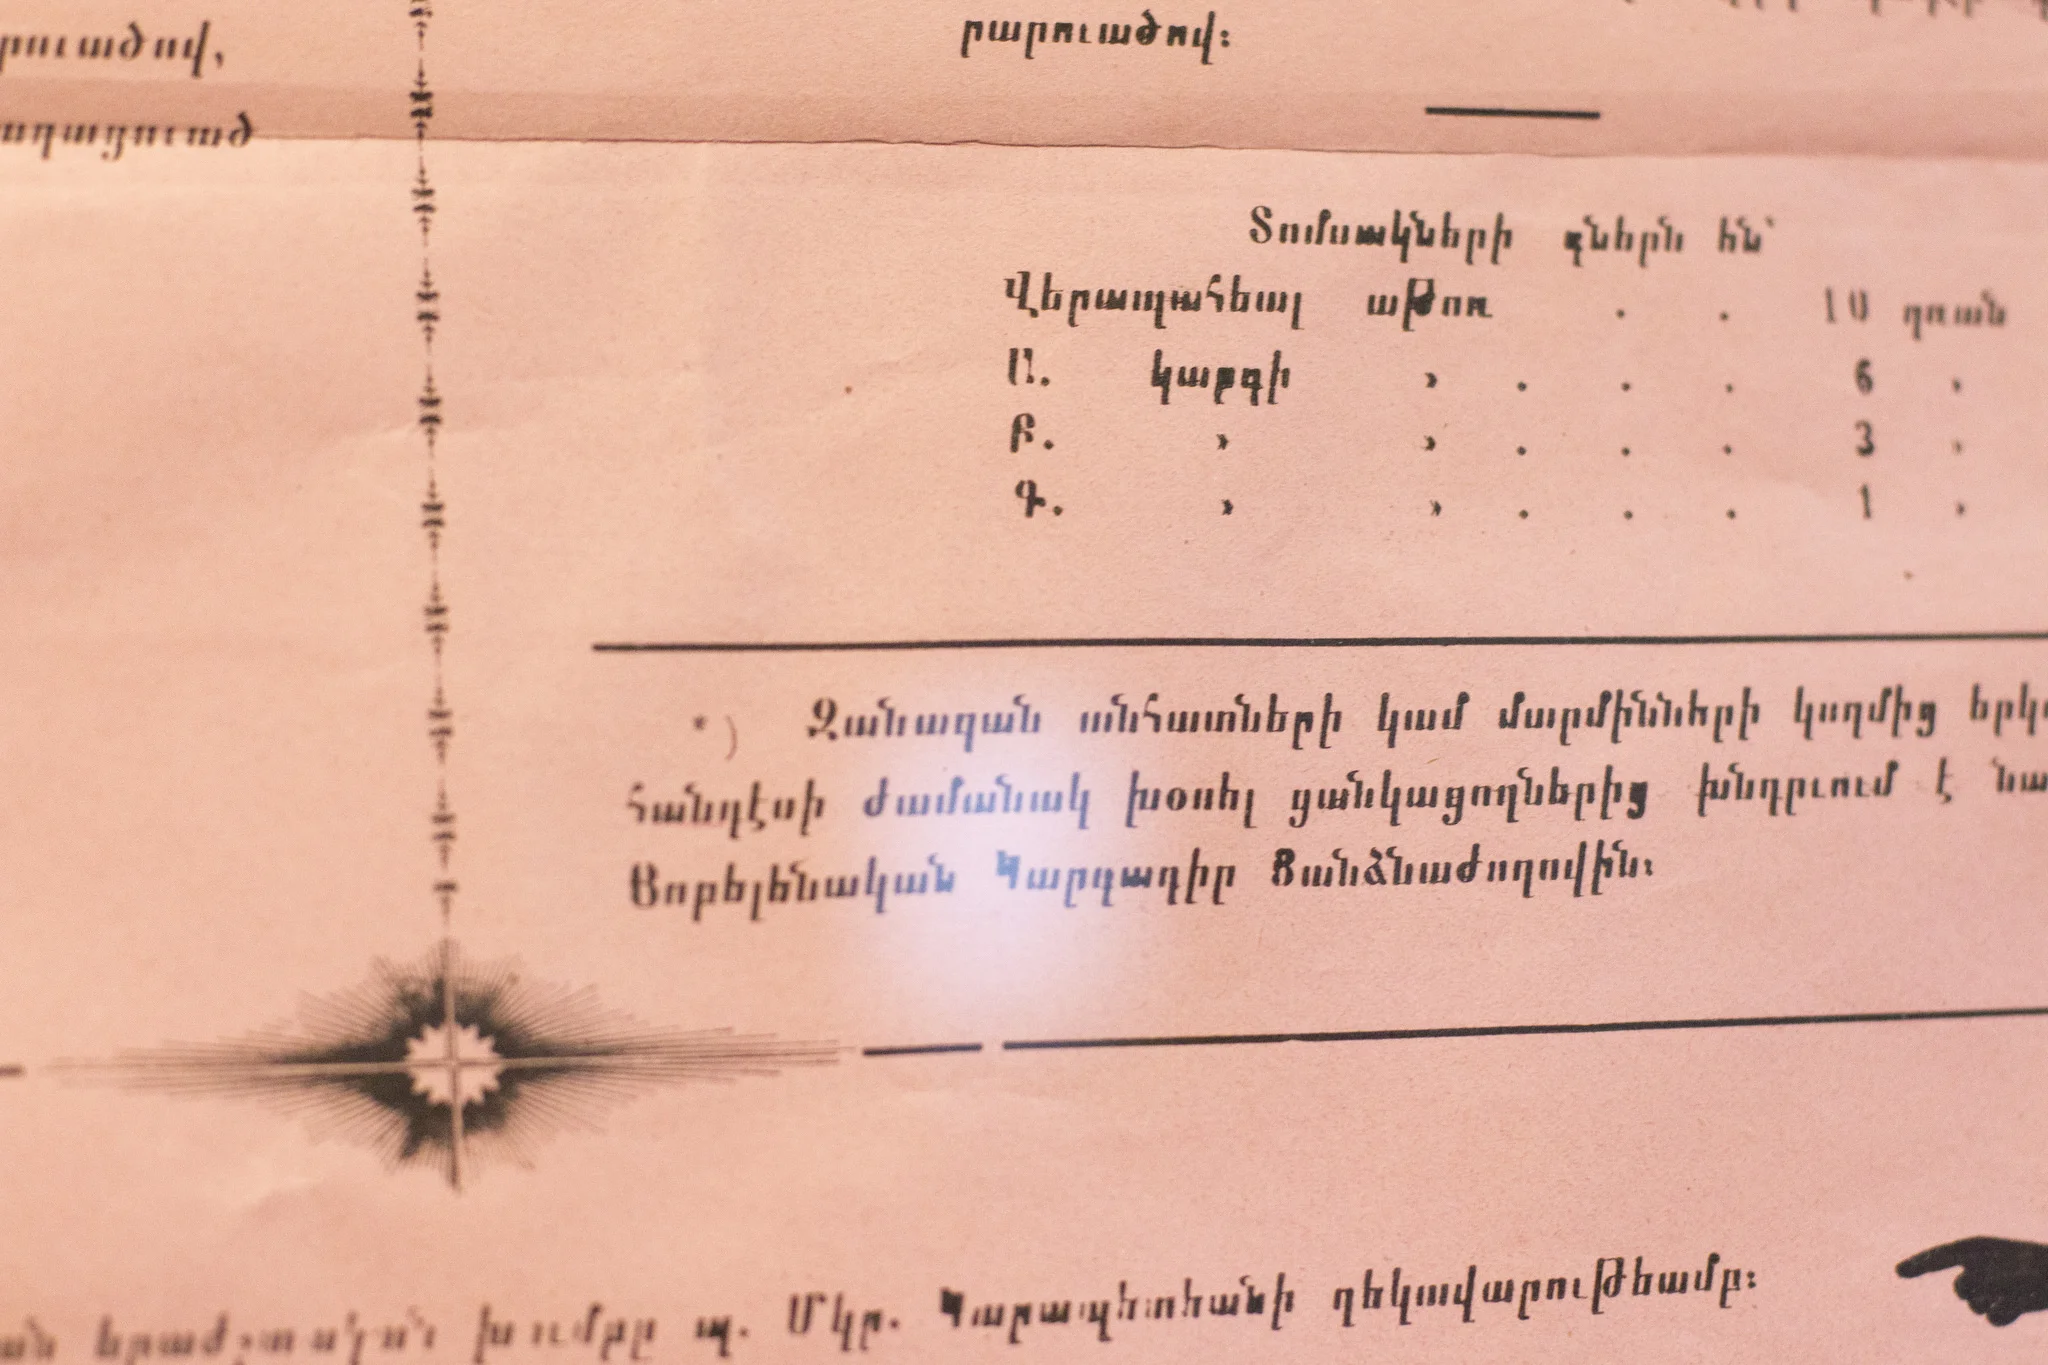 րարուածով։
Տոմսակների գներն են՝
Վերապահեալ աթոռ . . 10 ղռան
Ա. կարգի » . . . 6 »
Բ. » » . . . 3 »
Գ. » » . . . 1 »
*) Զանազան անհատների կամ մարմինների կողմից
հանդէսի ժամանակ խօսել ցանկացողներից խնդրւում է
Յոբելենական Կարգադիր Յանձնաժողովին։
խումբը պ. Մկր. Կարապետեանի ղեկավարութեամբ։